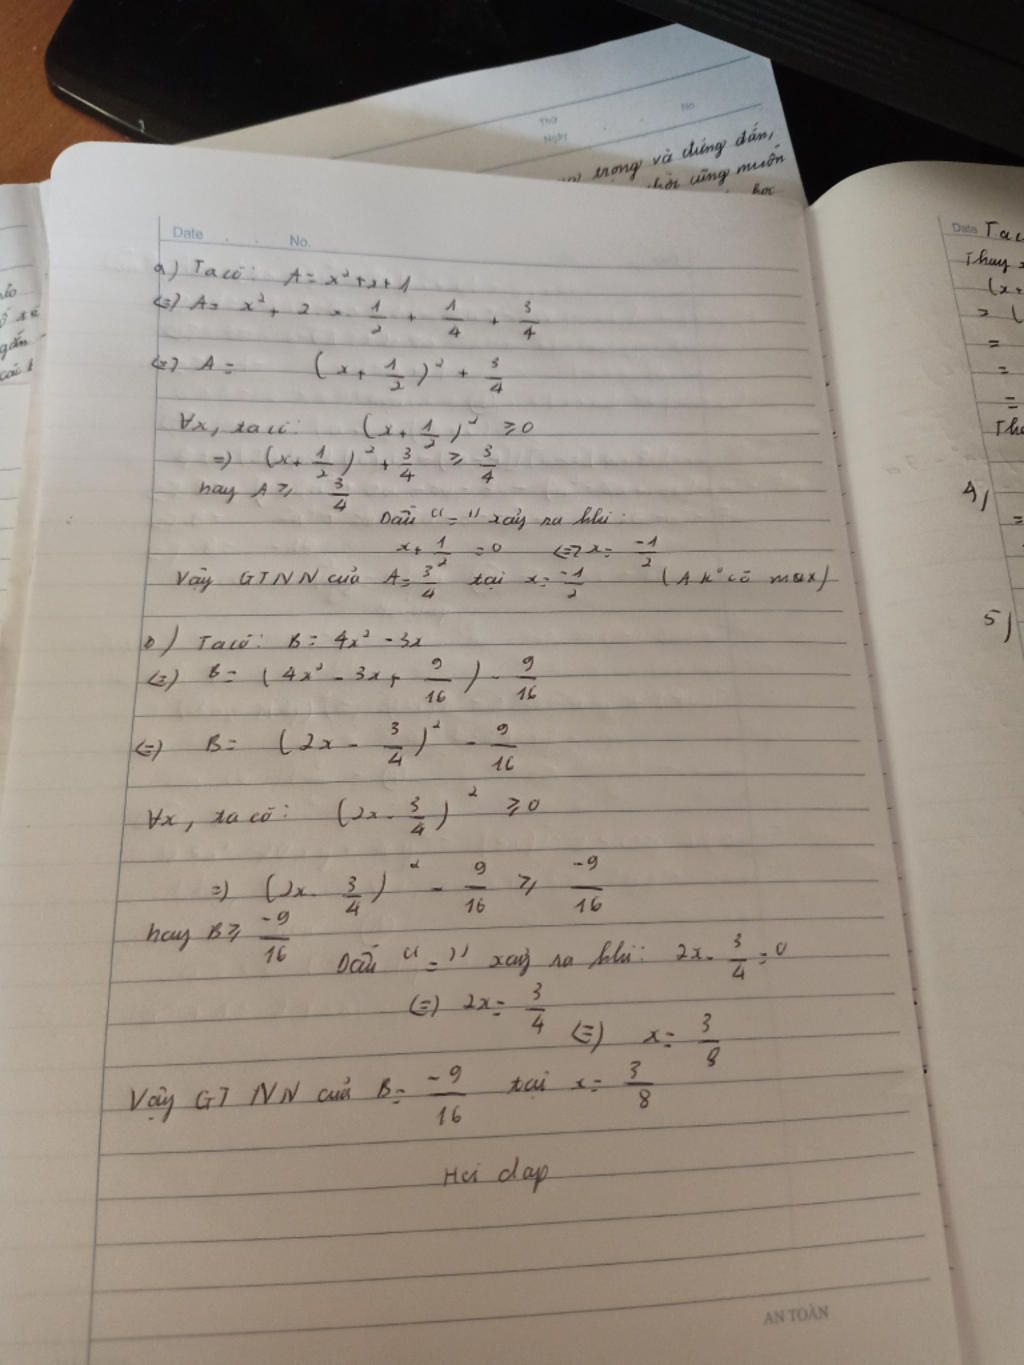 Thứ
Ngày
No.
trọng và đứng đắn,
cũng muốn
học
Date . . No.
a) Ta có: A = x² + x + 1
(=) A = x² + 2 . 1/2 + 1/4 + 3/4
(=) A = (x + 1/2)² + 3/4
∀x, ta có: (x + 1/2)² ≥ 0
=) (x + 1/2)² + 3/4 ≥ 3/4
hay A ≥ 3/4
Dấu "=" xảy ra khi:
x + 1/2 = 0 (=) x = -1/2
Vậy GTNN của A = 3/4 tại x = -1/2 (A k° có max)
b) Ta có: B = 4x² - 3x
(=) B = (4x² - 3x + 9/16) - 9/16
(=) B = (2x - 3/4)² - 9/16
∀x, ta có: (2x - 3/4)² ≥ 0
=) (2x - 3/4)² - 9/16 ≥ -9/16
hay B ≥ -9/16
Dấu "=" xảy ra khi: 2x - 3/4 = 0
(=) 2x = 3/4 (=) x = 3/8
Vậy GTNN của B = -9/16 tại x = 3/8
Hoi dap
AN TOÀN
Date Ta c
Thay x
(x+
= (
=
=
=
Tha
4)
=
5)